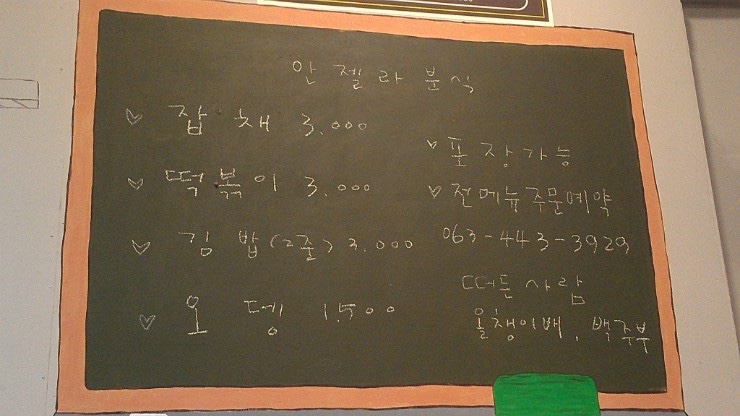 안젤라분식
잡채 3.000
떡볶이 3.000
김밥(2줄) 3.000
오뎅 1500
포장가능
전메뉴주문예약
063-443-3929
떠든사람
올챙이배, 백주부